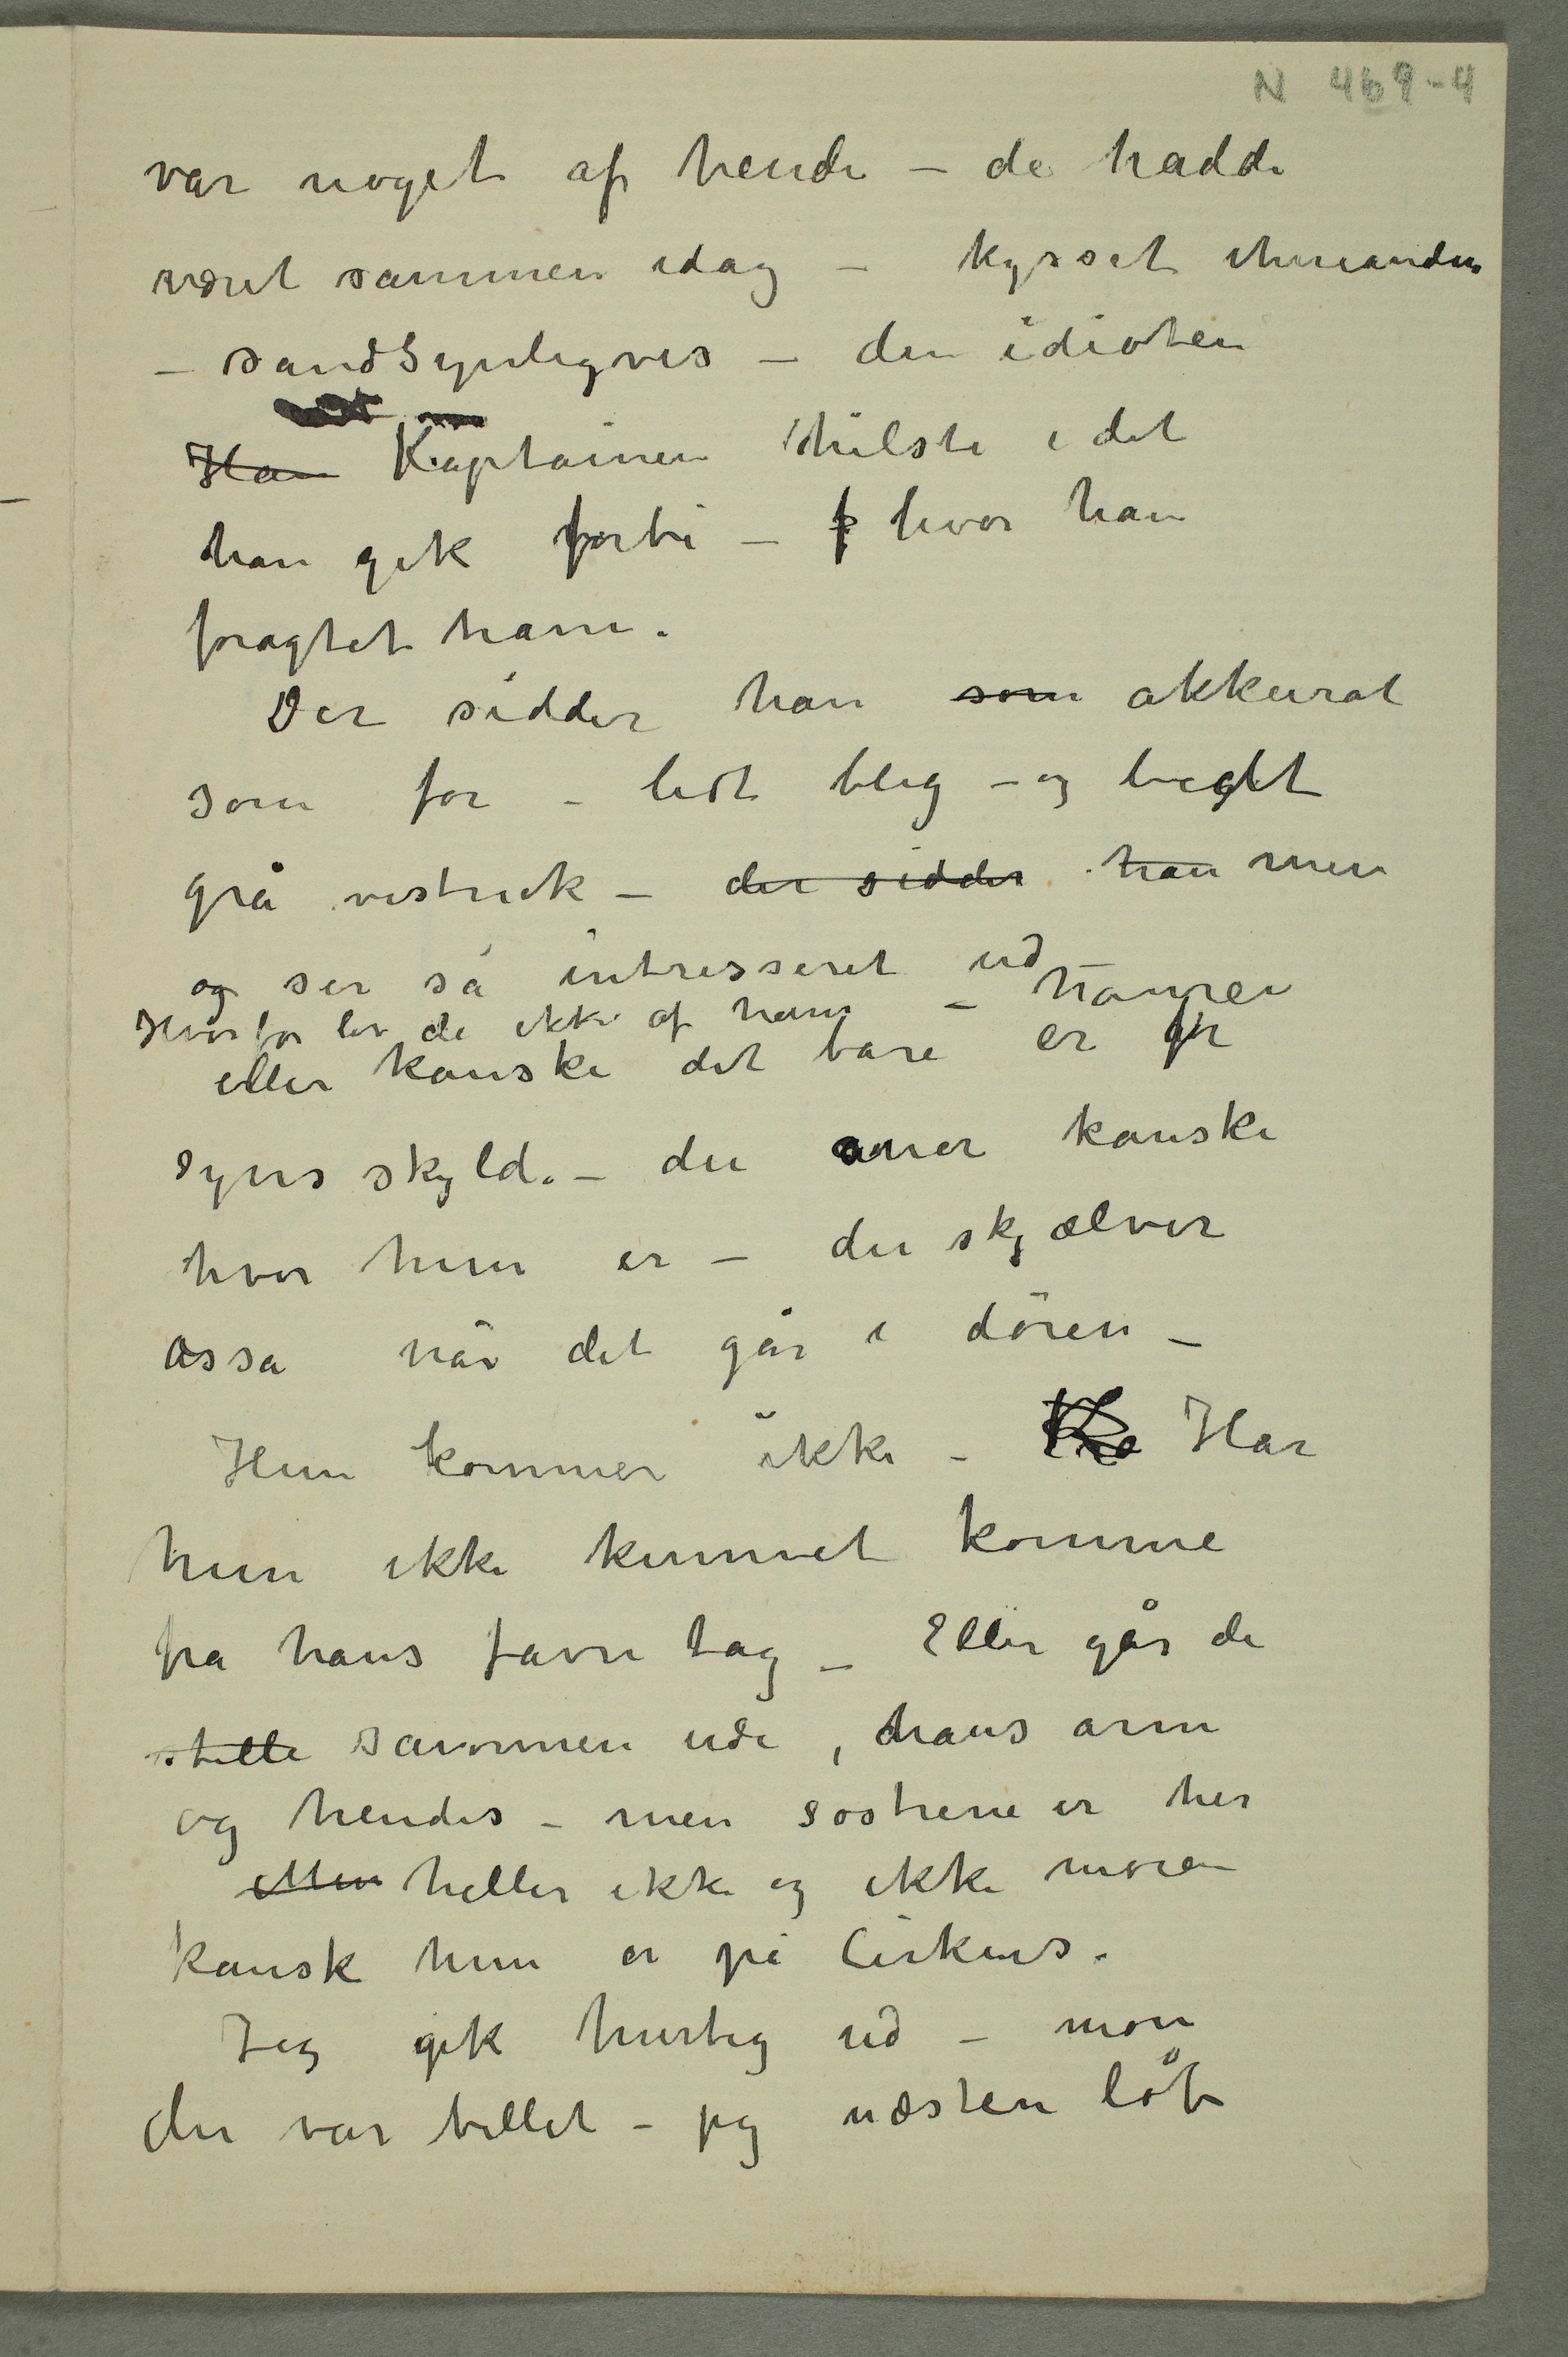 N 469-4
var noget af hende – de hadde
været sammen idag – kysset hinanden
– sandsynligvis – den idioten
Han Kaptainen hilste i det
han gik forbi – f hvor han
fragtet ham.
Der sidder han som akkurat
som før – lidt bleg – og
grå vistnok – der sidder han men
og ser så intresseret ud –
Hvorfor ler de ikke af ham – hanrei
eller kanske det bare er for
syns skyld. – du aner kanske
hvor hun er – du skjælver
osså når det går i døren –
Hun kommer ikke – Har
hun ikke kunnet komme
fra hans favntag – Eller går de
stille sammen ude, hans arm
og hendes – men søstrene er her
eller heller ikke og ikke moren
kansk hun er på Cirkus.
Jeg gik hurtig ud – mon
der var billet – jeg næsten løb